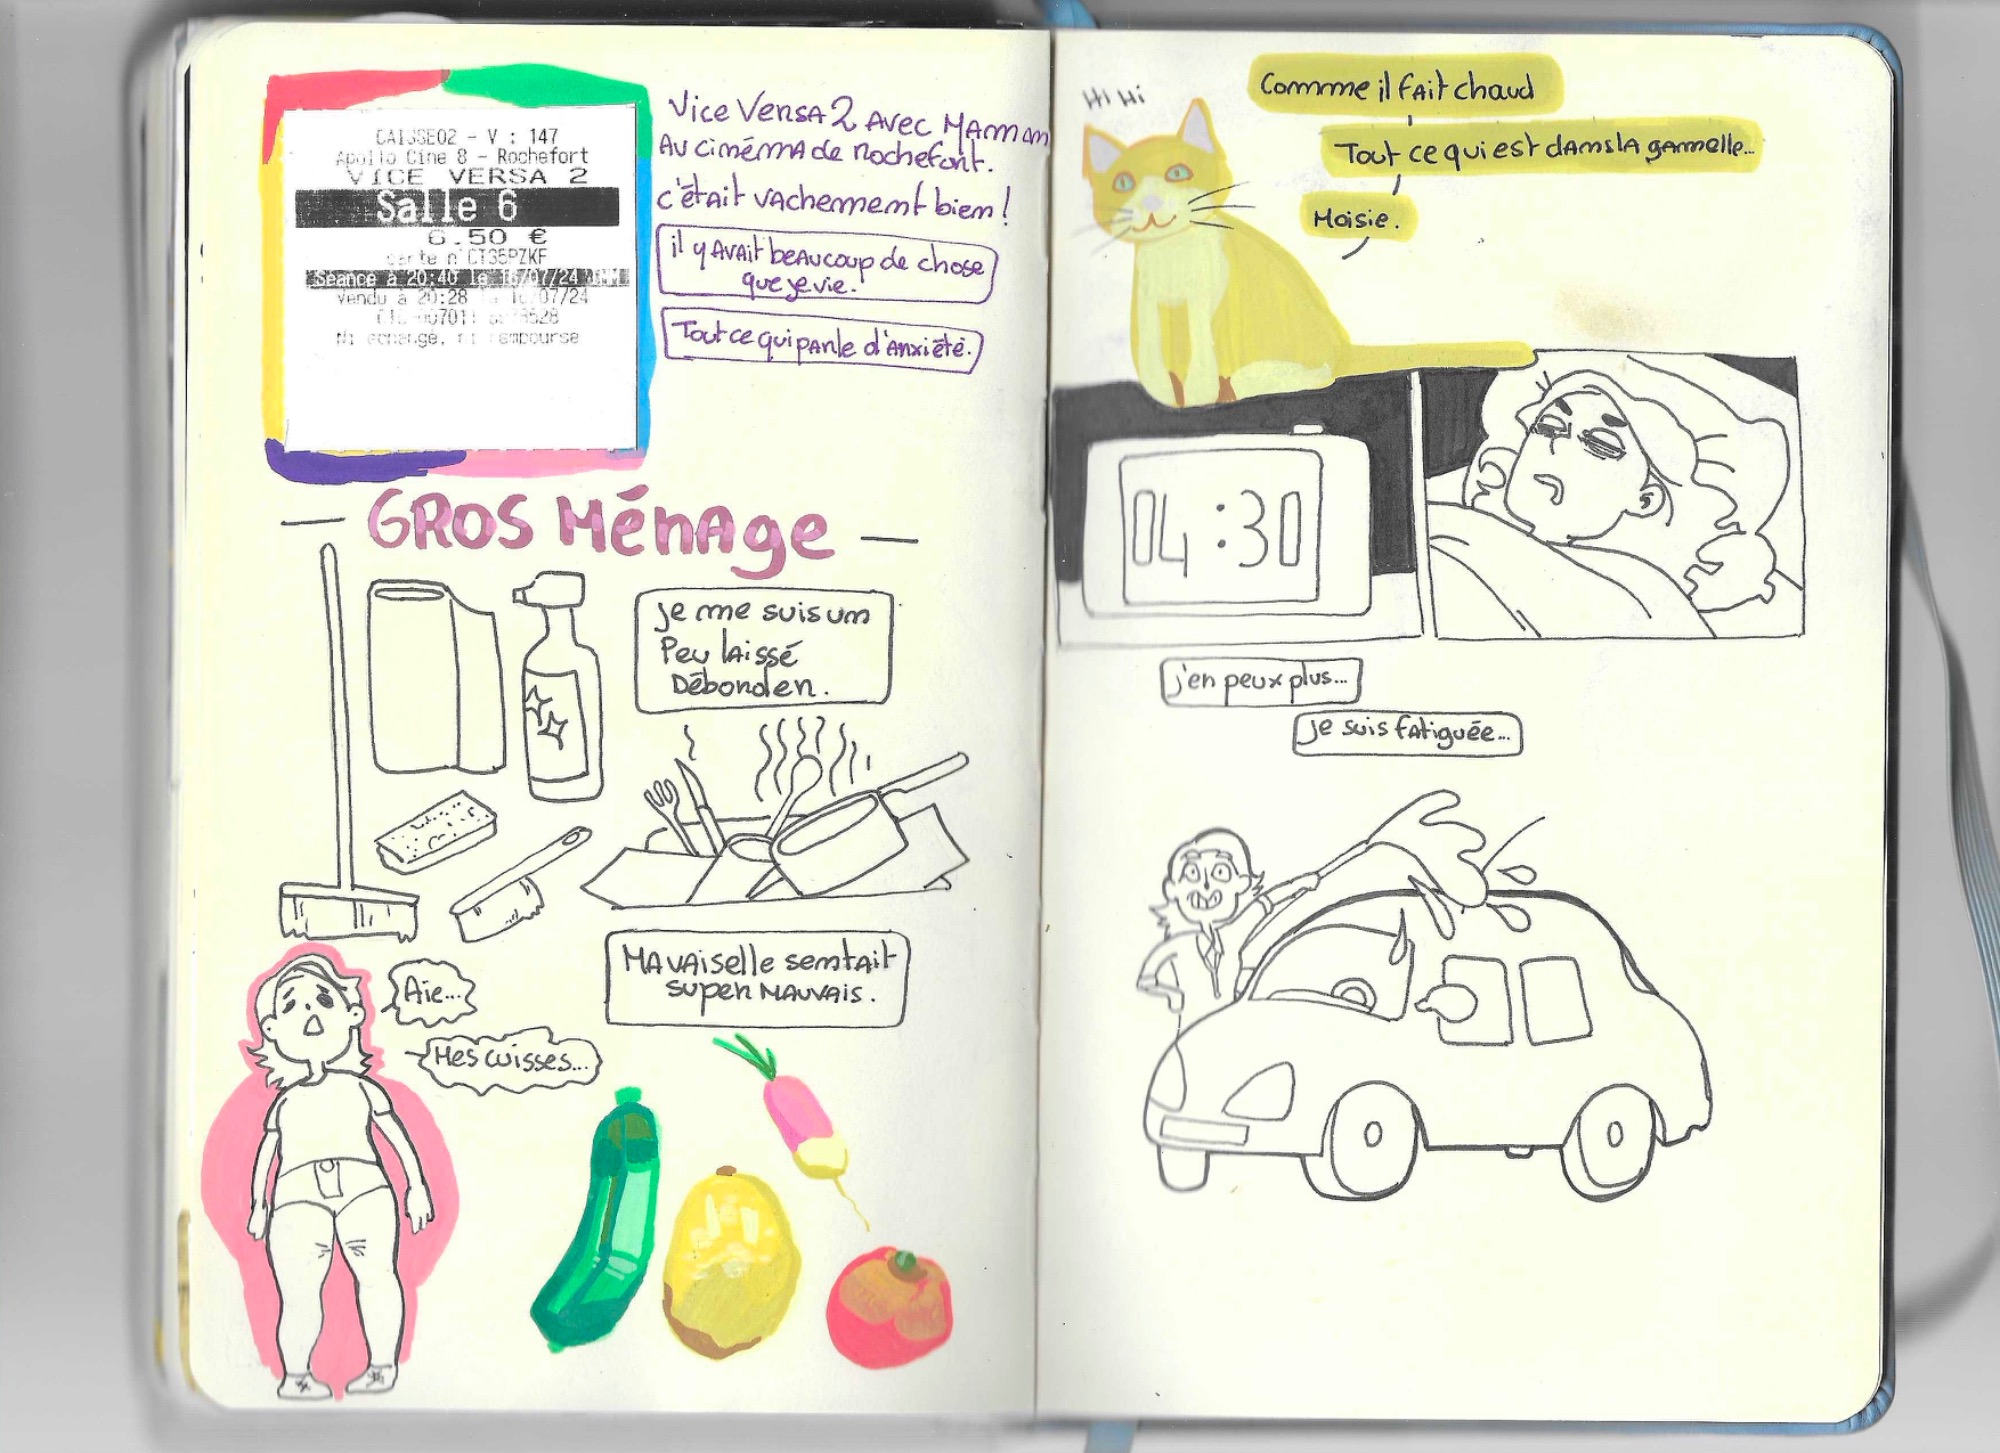 CAISSE02 - V : 147
Apollo Cine 8 - Rochefort
VICE VERSA 2
Salle 6
6.50 €
carte n°CTS5PZKF
Séance à 20:40 le 16/07/24
vendu à 20:28 le 16/07/24
Ni échange, ni remboursé
Vice Versa 2 avec Maman
Au cinéma de Rochefort.
c'était vachement bien !
il y avait beaucoup de chose
que je vie.
Tout ce qui parle d'anxiété.
GROS Ménage
je me suis um
Peu laissé
Déborder.
Ma vaiselle sentait
super mauvais.
Aïe...
Mes cuisses...
Hi Hi
Commme il fait chaud
Tout ce qui est dams la gamelle...
Moisie.
04:30
j'en peux plus...
je suis fatiguée...